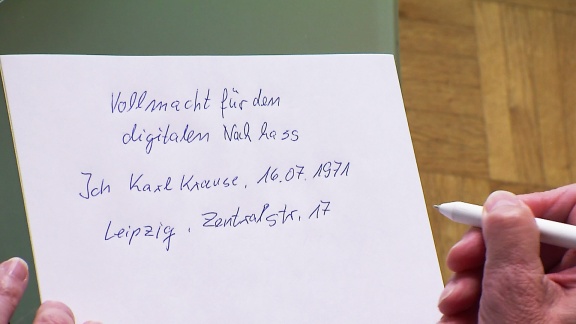 Vollmacht für den
digitalen Nachlass
Ich Karl Krause, 16.07.1971
Leipzig, Zentralstr. 17